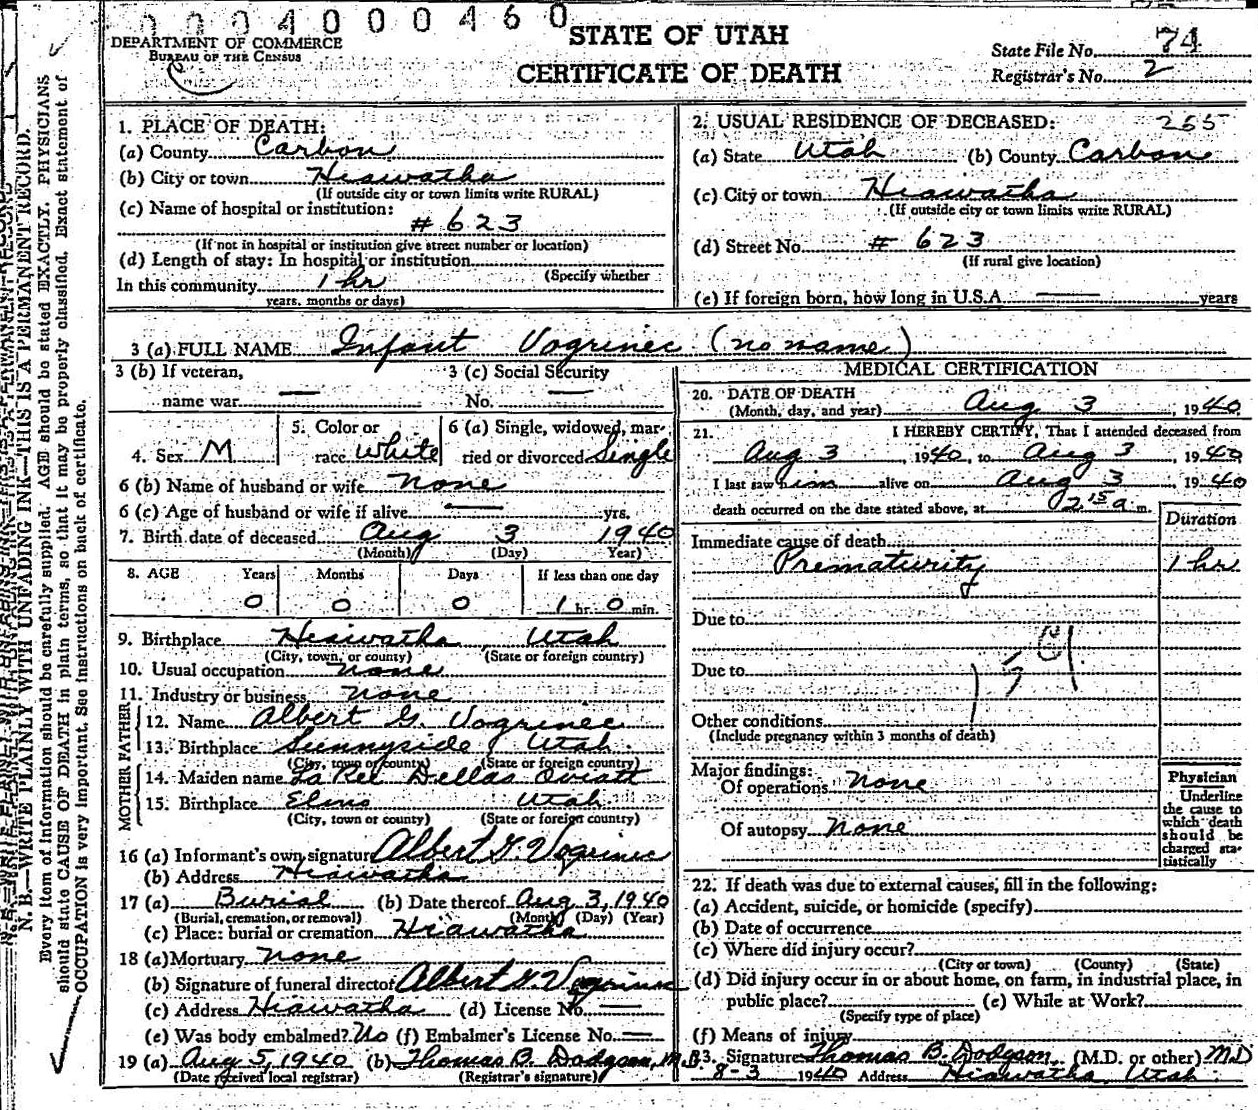 0004000460
STATE OF UTAH
CERTIFICATE OF DEATH
DEPARTMENT OF COMMERCE
BUREAU OF THE CENSUS
State File No. 74
Registrar's No. 2
N. B.—WRITE PLAINLY WITH UNFADING INK—THIS IS A PERMANENT RECORD.
Every item of information should be carefully supplied. AGE should be stated EXACTLY. PHYSICIANS
should state CAUSE OF DEATH in plain terms, so that it may be properly classified. Exact statement of
OCCUPATION is very important. See instructions on back of certificate.
1. PLACE OF DEATH:
(a) County Carbon
(b) City or town Hiawatha
(If outside city or town limits write RURAL)
(c) Name of hospital or institution:
# 623
(If not in hospital or institution give street number or location)
(d) Length of stay: In hospital or institution
(Specify whether
In this community 1 hr
years, months or days)
2. USUAL RESIDENCE OF DECEASED: 265
(a) State Utah (b) County Carbon
(c) City or town Hiawatha
(If outside city or town limits write RURAL)
(d) Street No. # 623
(If rural give location)
(e) If foreign born, how long in U.S.A. — years
3 (a) FULL NAME Infant Vogrinec (no name)
3 (b) If veteran, name war —
3 (c) Social Security No. —
4. Sex M
5. Color or race White
6 (a) Single, widowed, married or divorced Single
6 (b) Name of husband or wife none
6 (c) Age of husband or wife if alive — yrs.
7. Birth date of deceased Aug 3 1940
(Month) (Day) Year)
8. AGE Years Months Days If less than one day
0 0 0 1 hr. 0 min.
9. Birthplace Hiawatha Utah
(City, town, or county) (State or foreign country)
10. Usual occupation none
11. Industry or business none
FATHER
12. Name Albert G. Vogrinec
13. Birthplace Sunnyside Utah
(City, town or county) (State or foreign country)
MOTHER
14. Maiden name La Ree Dellas Oviatt
15. Birthplace Elmo Utah
(City, town or county) (State or foreign country)
16 (a) Informant's own signature Albert G. Vogrinec
(b) Address Hiawatha
17 (a) Burial (b) Date thereof Aug 3, 1940
(Burial, cremation, or removal) (Month) (Day) (Year)
(c) Place: burial or cremation Hiawatha
18 (a) Mortuary none
(b) Signature of funeral director Albert G. Vogrinec
(c) Address Hiawatha (d) License No. —
(e) Was body embalmed? No (f) Embalmer's License No. —
19 (a) Aug 5, 1940 (b) Thomas B. Dodgson, M.D.
(Date received local registrar) (Registrar's signature)
MEDICAL CERTIFICATION
20. DATE OF DEATH
(Month, day, and year) Aug 3, 1940
21. I HEREBY CERTIFY, That I attended deceased from
Aug 3, 1940, to Aug 3, 1940
I last saw him alive on Aug 3 1940
death occurred on the date stated above, at 2 15 a m.
Duration
Immediate cause of death
Prematurity 1 hr
Due to
Due to
159
Other conditions
(Include pregnancy within 3 months of death)
Major findings:
Of operations none
Of autopsy none
Physician
Underline
the cause to
which death
should be
charged sta-
tistically
22. If death was due to external causes, fill in the following:
(a) Accident, suicide, or homicide (specify)
(b) Date of occurrence
(c) Where did injury occur?
(City or town) (County) (State)
(d) Did injury occur in or about home, on farm, in industrial place, in
public place? (e) While at Work?
(Specify type of place)
(f) Means of injury
23. Signature Thomas B. Dodgson (M.D. or other) MD
8-3 1940 Address Hiawatha, Utah